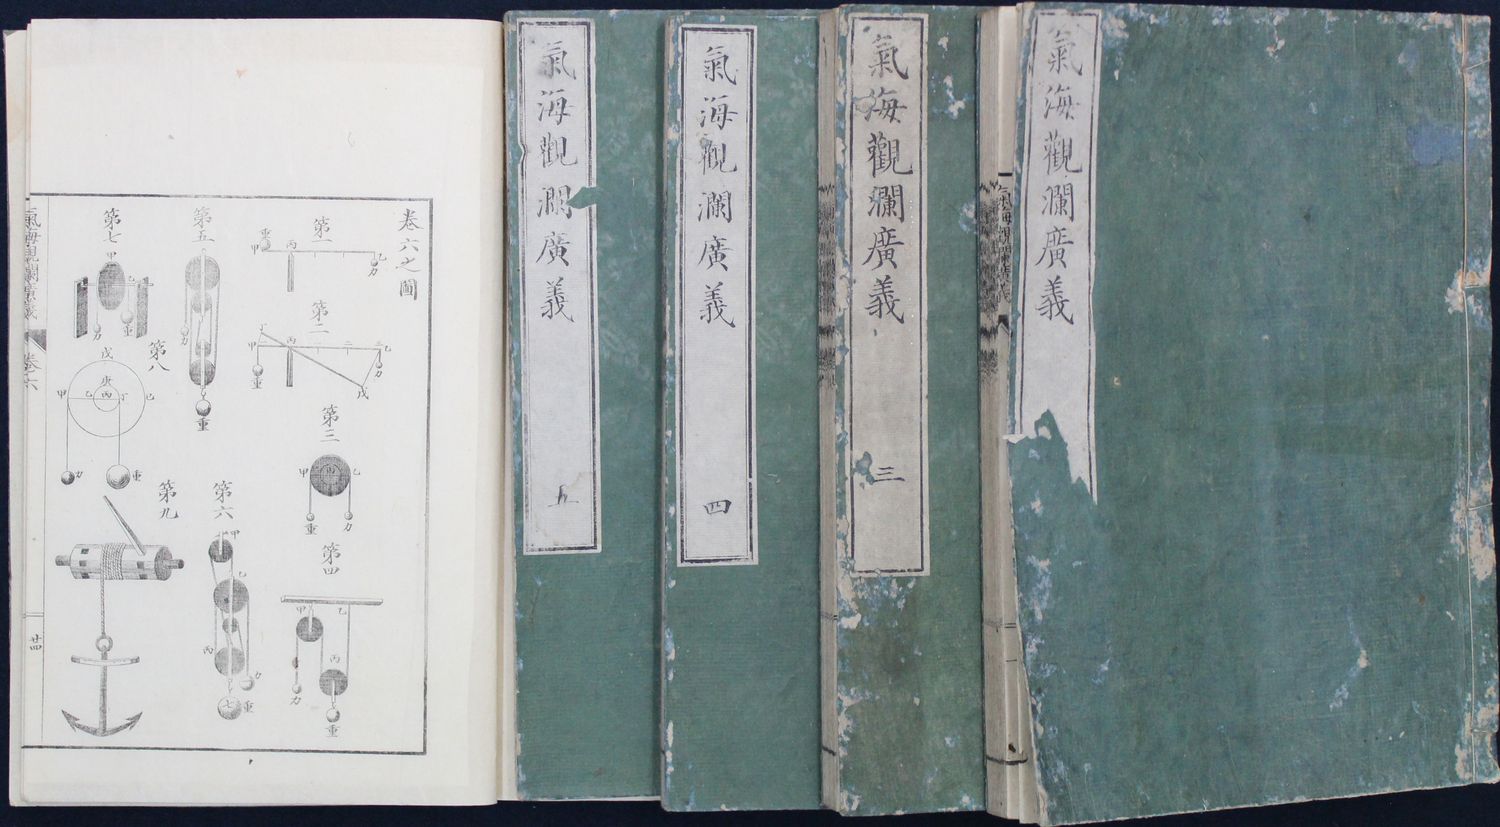 氣海觀瀾廣義
氣海觀瀾廣義
三
氣海觀瀾廣義
四
氣海觀瀾廣義
五
卷六之圖
第一
重
甲
丙
乙
力
第二
丁
甲
丙
二
三
乙
重
力
戊
第三
甲
丙
乙
重
力
第四
甲
乙
丙
力
重
第五
力
重
第六
甲
乙
丙
力
七
重
第七
甲
乙
力
重
第八
戊
庚
甲
乙
丙
丁
己
力
重
第九
氣海觀瀾廣義
卷六
廿四